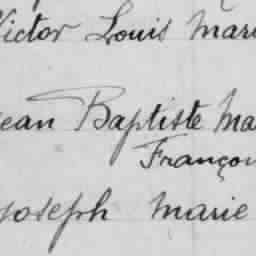 Victor Louis Mari
ean Baptiste Ma
Françoi
Joseph Marie